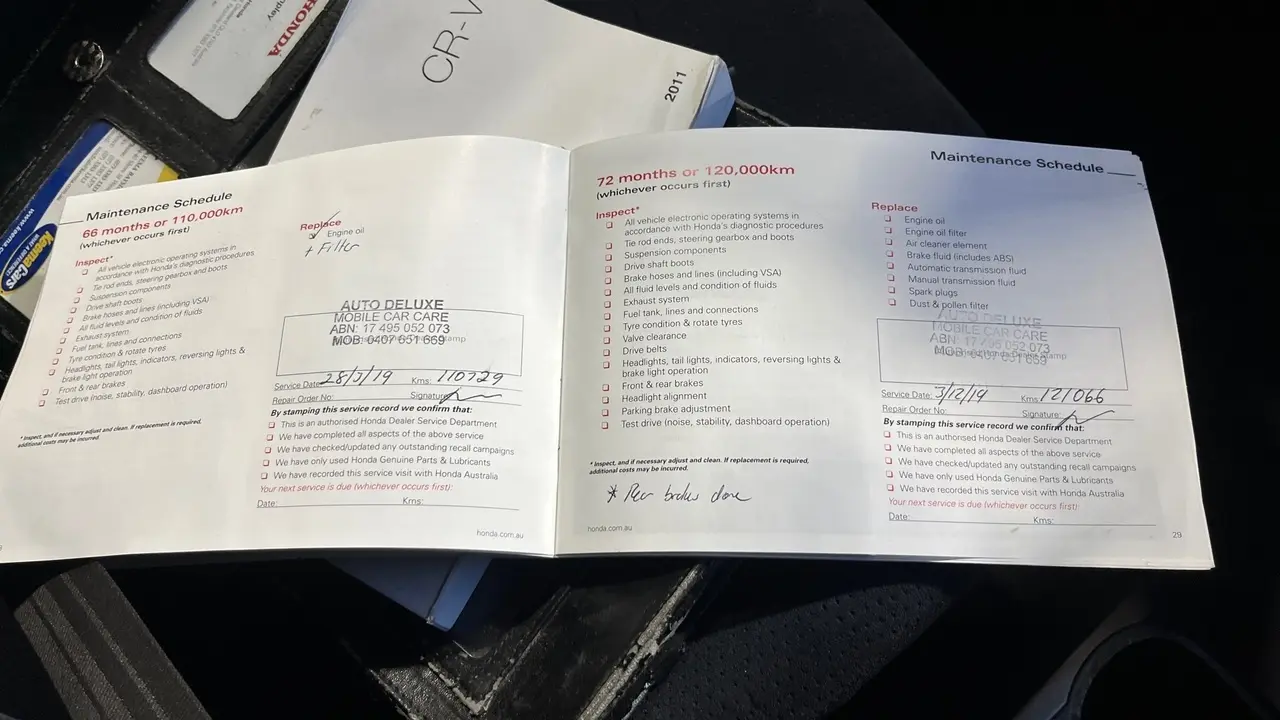 HONDA
CR-V
2011
Keema Cars
Maintenance Schedule
66 months or 110,000km
(whichever occurs first)
Inspect*
All vehicle electronic operating systems in
accordance with Honda's diagnostic procedures
Tie rod ends, steering gearbox and boots
Suspension components
Drive shaft boots
Brake hoses and lines (including VSA)
All fluid levels and condition of fluids
Exhaust system
Fuel tank, lines and connections
Tyre condition & rotate tyres
Headlights, tail lights, indicators, reversing lights &
brake light operation
Front & rear brakes
Test drive (noise, stability, dashboard operation)
* Inspect, and if necessary adjust and clean. If replacement is required,
additional costs may be incurred.
Replace
Engine oil
+ Filter
AUTO DELUXE
MOBILE CAR CARE
ABN: 17 495 052 073
MOB: 0407 651 669
Service Date: 28/3/19 Kms: 110729
Repair Order No: Signature:
By stamping this service record we confirm that:
This is an authorised Honda Dealer Service Department
We have completed all aspects of the above service
We have checked/updated any outstanding recall campaigns
We have only used Honda Genuine Parts & Lubricants
We have recorded this service visit with Honda Australia
Your next service is due (whichever occurs first):
Date: Kms:
honda.com.au
Maintenance Schedule
72 months or 120,000km
(whichever occurs first)
Inspect*
All vehicle electronic operating systems in
accordance with Honda's diagnostic procedures
Tie rod ends, steering gearbox and boots
Suspension components
Drive shaft boots
Brake hoses and lines (including VSA)
All fluid levels and condition of fluids
Exhaust system
Fuel tank, lines and connections
Tyre condition & rotate tyres
Valve clearance
Drive belts
Headlights, tail lights, indicators, reversing lights &
brake light operation
Front & rear brakes
Headlight alignment
Parking brake adjustment
Test drive (noise, stability, dashboard operation)
* Inspect, and if necessary adjust and clean. If replacement is required,
additional costs may be incurred.
* Rear brakes done
honda.com.au
Replace
Engine oil
Engine oil filter
Air cleaner element
Brake fluid (includes ABS)
Automatic transmission fluid
Manual transmission fluid
Spark plugs
Dust & pollen filter
AUTO DELUXE
MOBILE CAR CARE
ABN: 17 495 052 073
MOB: 0407 651 669
Service Date: 3/12/19 Kms: 121066
Repair Order No: Signature:
By stamping this service record we confirm that:
This is an authorised Honda Dealer Service Department
We have completed all aspects of the above service
We have checked/updated any outstanding recall campaigns
We have only used Honda Genuine Parts & Lubricants
We have recorded this service visit with Honda Australia
Your next service is due (whichever occurs first):
Date: Kms:
29